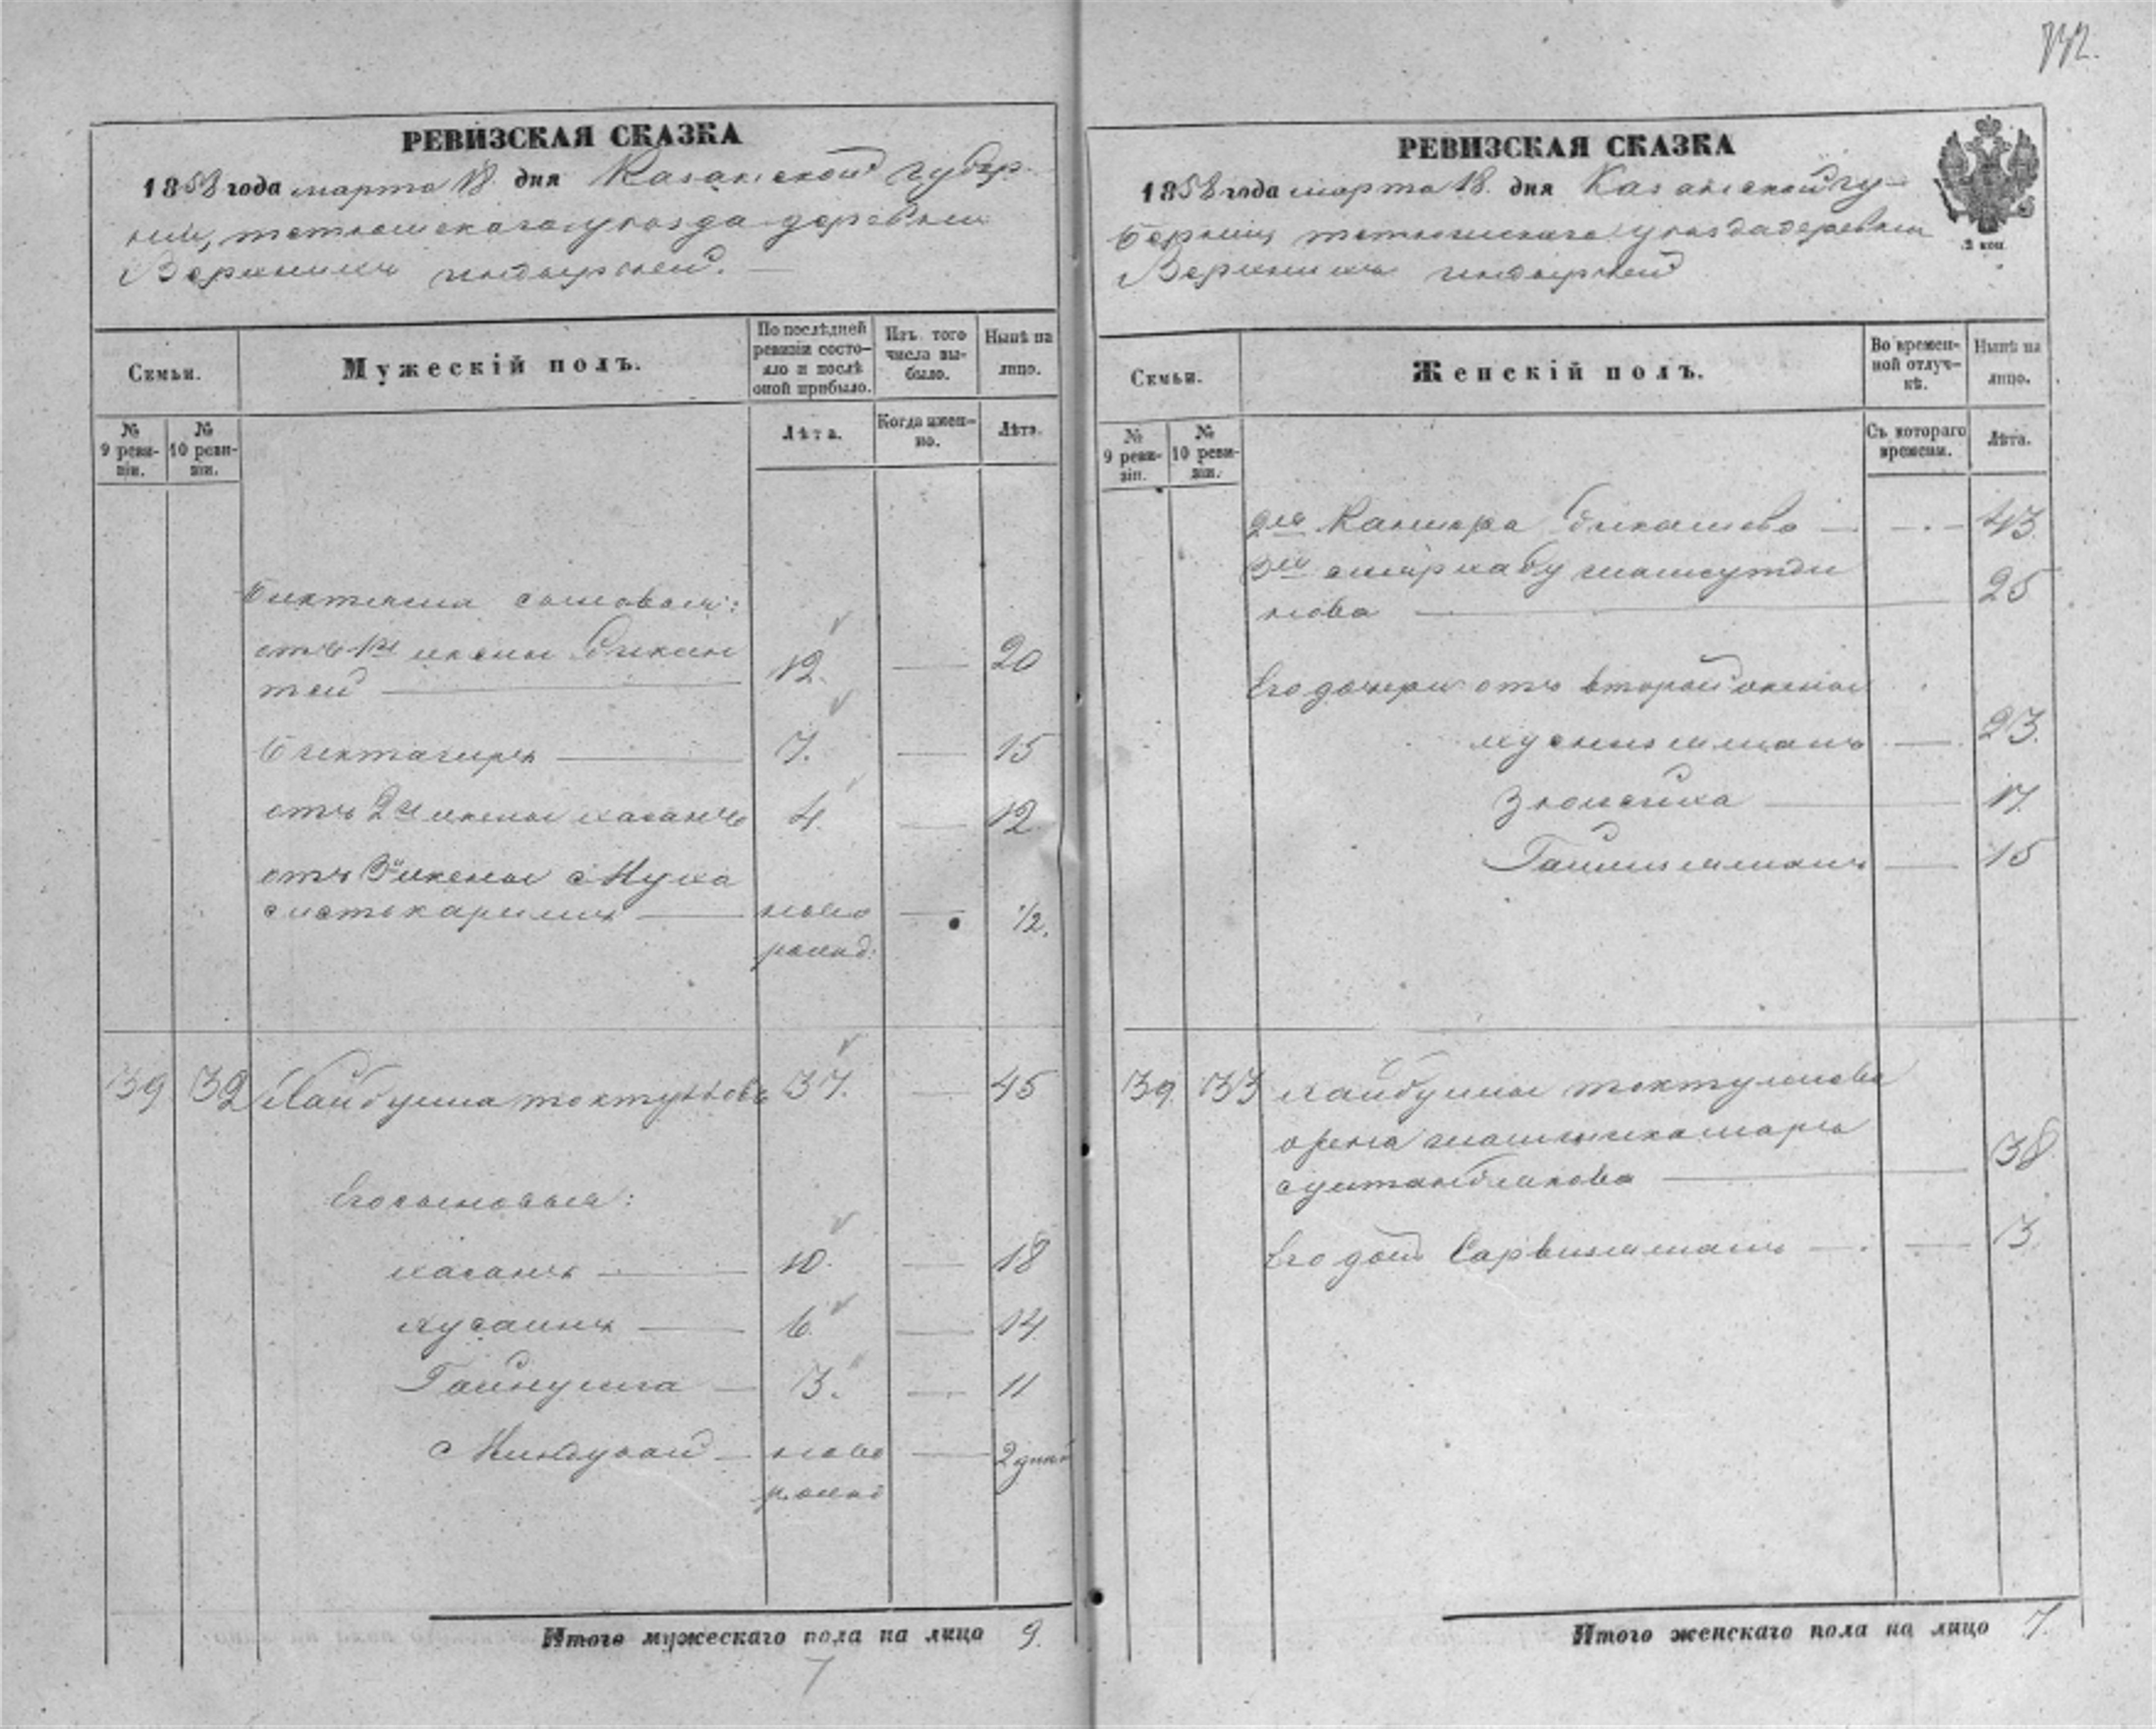 РЕВИЗСКАЯ СКАЗКА
1858 года марта 18. дня Казанской губер-
нии, тетюшскаго уезда деревни
Верхнихъ индырчей.
Семьи.
Мужескій полъ.
По послѣдней ревизіи состо-яло и послѣ оной прибыло.
Изъ того числа вы-было.
Нынѣ на лицо.
№ 9 реви-зіи.
№ 10 реви-зіи.
Лѣта.
Когда имен-но.
Лѣта.
сыновья:
отъ 1й жены Бикин
тей 12. 20
Биктагиръ 7. 15
отъ 2й жены хасанъ 4. 12
отъ 3й жены Муха
ново ½.
рожд:
39 32 Хайбулла токтуловъ 37. 45
Его сыновья:
хасанъ 10. 18
хусаинъ 6. 14
Гайнулла 3. 11
ново 2 дней
рожд
Итого мужескаго пола на лицо 9.
7
РЕВИЗСКАЯ СКАЗКА
1858 года марта 18. дня Казанской гу-
берніи, тетюшскаго уезда деревни
Верхнихъ индырчей
2 коп
Семьи.
Женскій полъ.
Во времен-ной отлуч-кѣ.
Нынѣ на лицо.
№ 9 реви-зіи.
№ 10 реви-зіи.
Съ котораго времени.
Лѣта.
2я Бикашева 43.
3я
нова 25
Его дочери отъ второй жены
23.
Зюлейха 17.
15
39. 33 хайбуллы токтулова
жена
38
Его дочь Сарвижиманъ 3.
Итого женскаго пола на лицо 7.